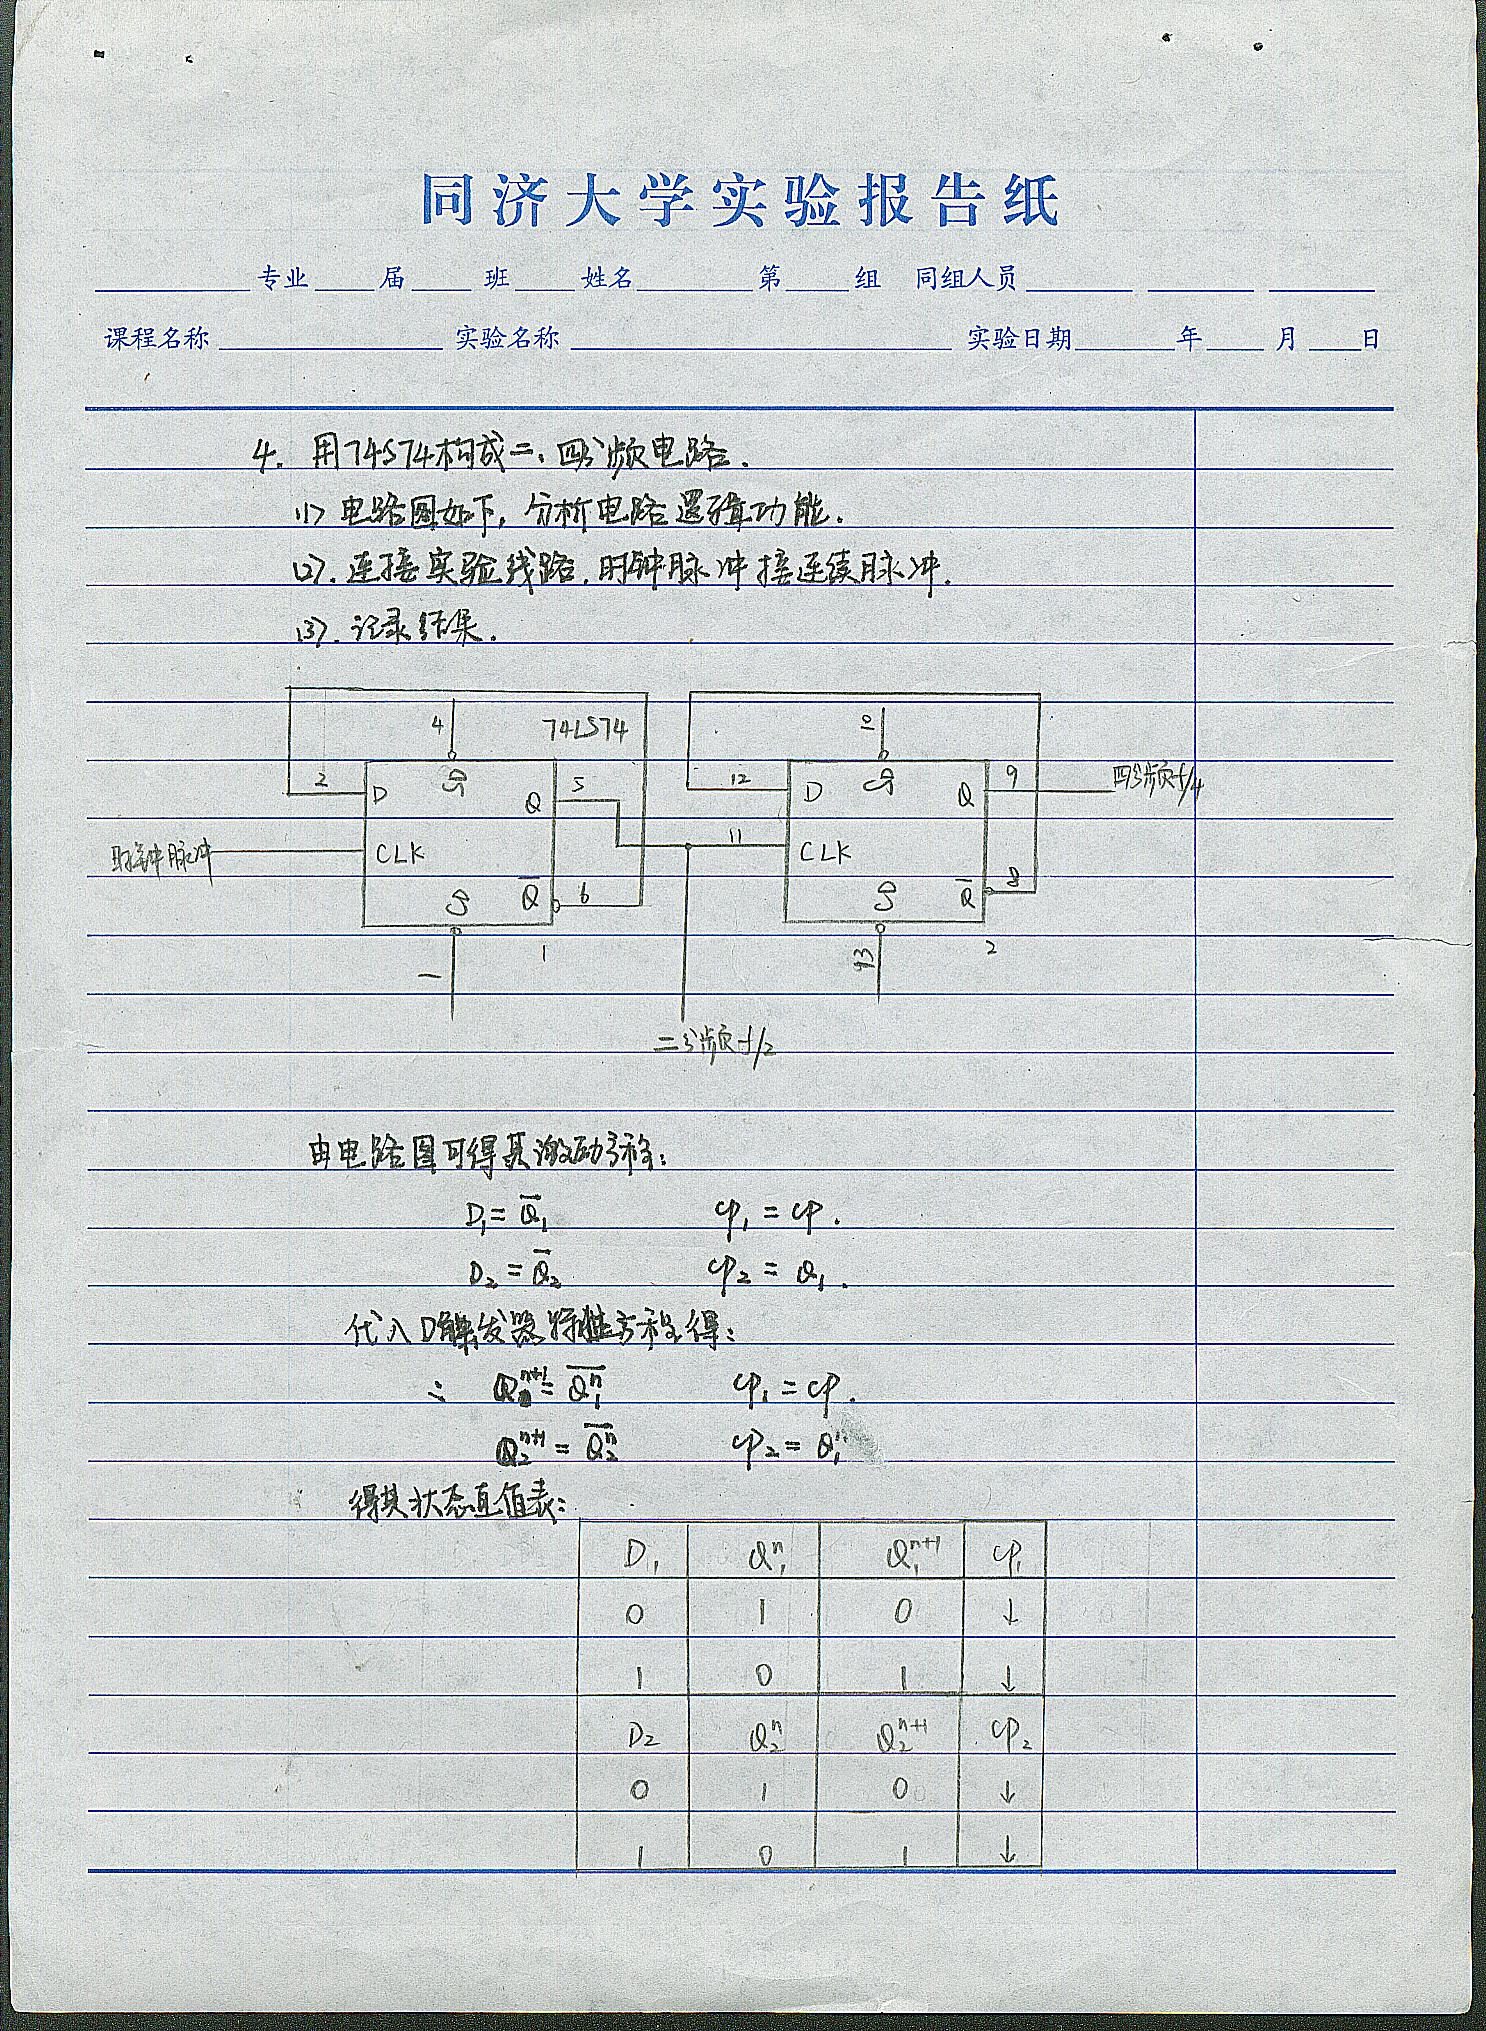 同济大学实验报告纸
专业 届 班 姓名 第 组 同组人员
课程名称 实验名称 实验日期 年 月 日
4. 用74S74构成二、四分频电路.
(1) 电路图如下, 分析电路逻辑功能.
(2). 连接实验线路, 时钟脉冲接连续脉冲.
(3). 记录结果.
4 74LS74
2 D Q 5 12 D Q 9 四分频f/4
时钟脉冲 CLK 11 CLK
Q̅ 6 Q̅ 8
1 1 13 2
二分频f/2
由电路图可得其激励方程:
D₁ = Q̅₁ cp₁ = cp.
D₂ = Q̅₂ cp₂ = Q₁.
代入D触发器特性方程得:
∴ Q₁ⁿ⁺¹ = Q̅₁ⁿ cp₁ = cp.
Q₂ⁿ⁺¹ = Q̅₂ⁿ cp₂ = Q₁ⁿ
得其状态真值表:
D₁ Q₁ⁿ Q₁ⁿ⁺¹ cp₁
0 1 0 ↓
1 0 1 ↓
D₂ Q₂ⁿ Q₂ⁿ⁺¹ cp₂
0 1 0 ↓
1 0 1 ↓